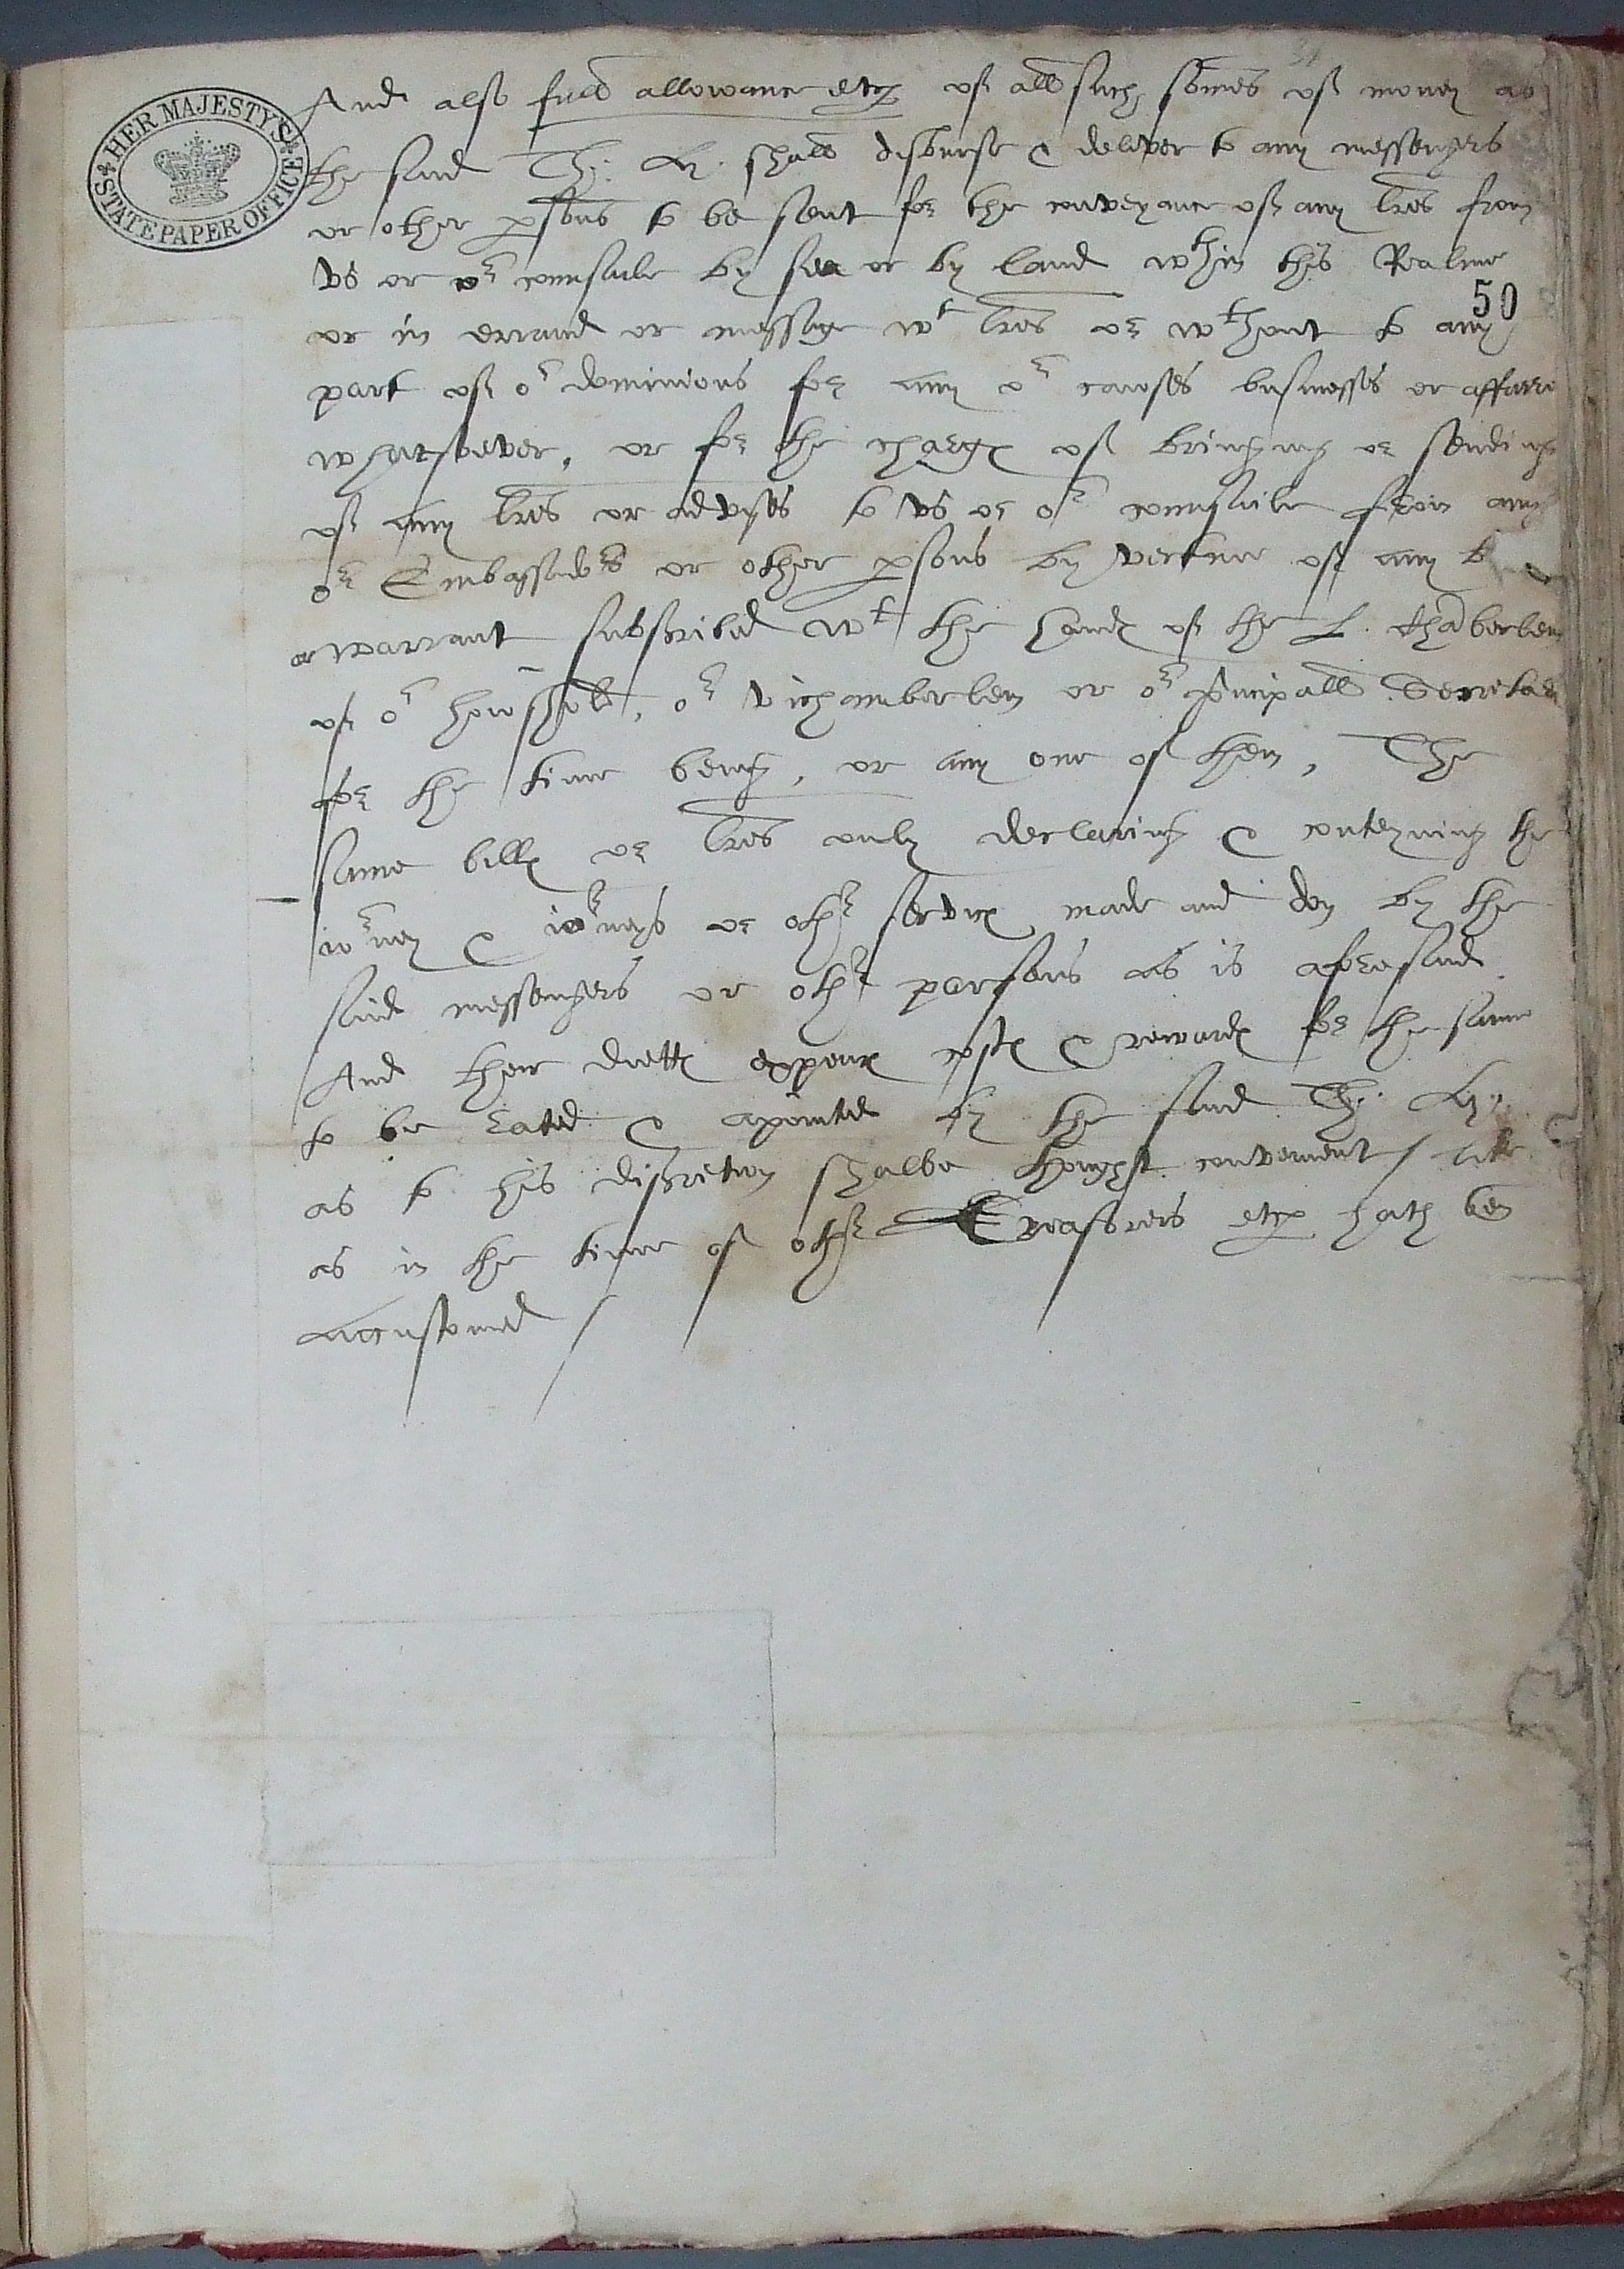 HER MAJESTY'S STATE PAPER OFFICE
50
And also full allowance etc of all such somes of money as
the said Th: H. shall disburse & deliver to any messengers
or other psons to be sent for the conveyance of any lres from
vs or or counsaile by sea or by land wthin this Realme
or in errand or message wt lres or wthout to any
part of or dominions for any or causes busynesses or affaire
whatsoever, or for the charge of bringing or sending
of any lres or advises to vs or or counsaile from any
or Embassadors or other psons by vertue of any
or warrant subscribed wt the hand of the L. Chaberlen
of or howshold, or vichamberlen or or principall Secretary
for the time being, or any one of them, The
same bills or lres only declaring & conteyning the
iorney & iorneys or other service made and don by the
said messengers or other parsons as is aforesaid
And their dietts expences costs & rewards for the same
to be rated & apointed by the said Th:
as to his discretion shalbe thought convenient / like
as in the time of other Treasorers etc hath ben
accustomed /